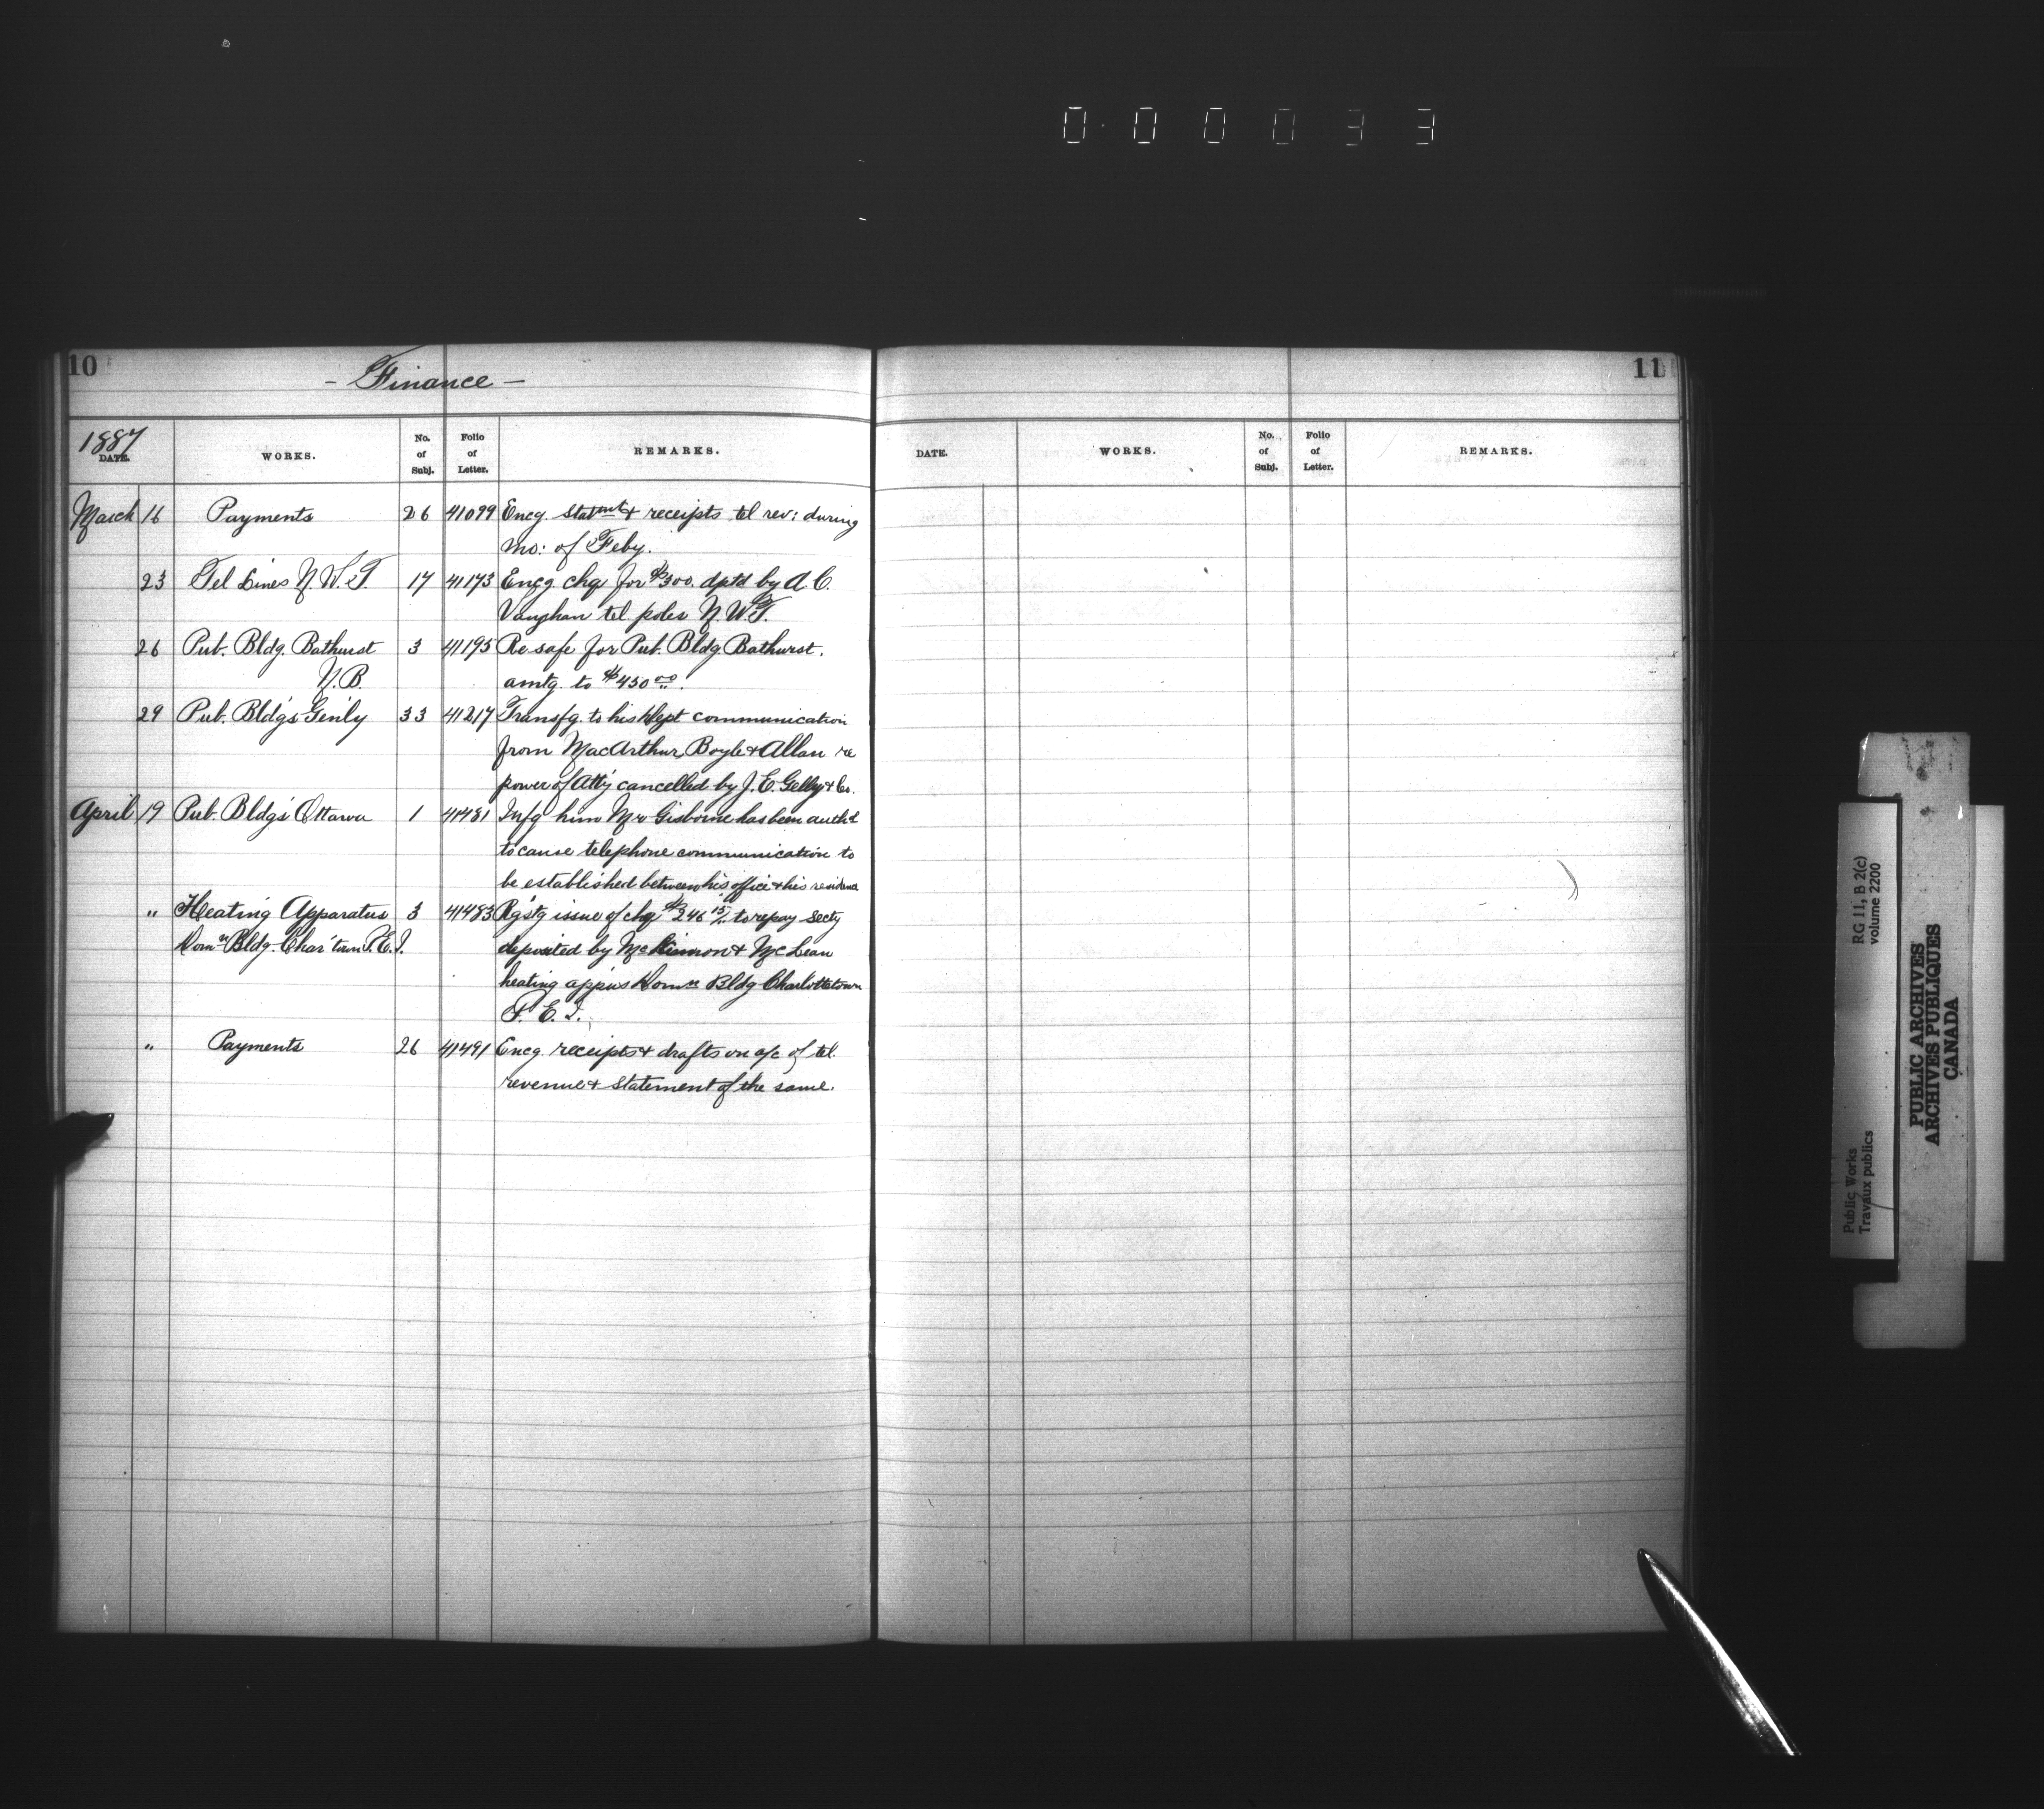 0 0 0 0 3 3
10
- Finance -
1887
DATE. WORKS. No. of Subj. Folio of Letter. REMARKS.
March 16 Payments 26 41099 Encg. statmt & receipts tel rev: during
mo: of Feby.
23 Tel Lines N.W.T. 17 41173 Encg. chq for $300. dptd by A.C.
Vaughan tel. poles N.W.T.
26 Pub. Bldg. Bathurst 3 41195 Re safe for Pub. Bldg. Bathurst.
N.B. amtg. to $450 00.
29 Pub. Bldgs Gen'ly 33 41217 Transfg. to his Dept communication
from MacArthur, Boyle & Allan re
power of Att'y cancelled by J.E. Gelly & Co.
April 19 Pub. Bldgs Ottawa 1 41481 Infg him Mr Gisborne has been authd
to cause telephone communication to
be established between his office & his residence
" Heating Apparatus 3 41483 Rqstg issue of chq $246 15/ to repay secty
Domn Bldg. Char'town P.E.I. deposited by McKinnon & McLean
heating app'us Domn Bldg Charlottetown
P.E.I.
" Payments 26 41491 Encg. receipts & drafts on a/c of tel.
revenue & statement of the same.
11
DATE. WORKS. No. of Subj. Folio of Letter. REMARKS.
Public Works
Travaux publics
RG 11, B 2(c)
volume 2200
PUBLIC ARCHIVES
ARCHIVES PUBLIQUES
CANADA